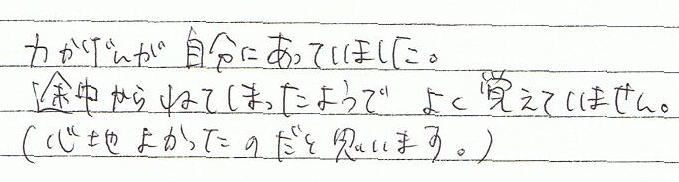 力かげんが自分にあっていました。
途中からねてしまったようでよく覚えていません。
(心地よかったのだと思います。)